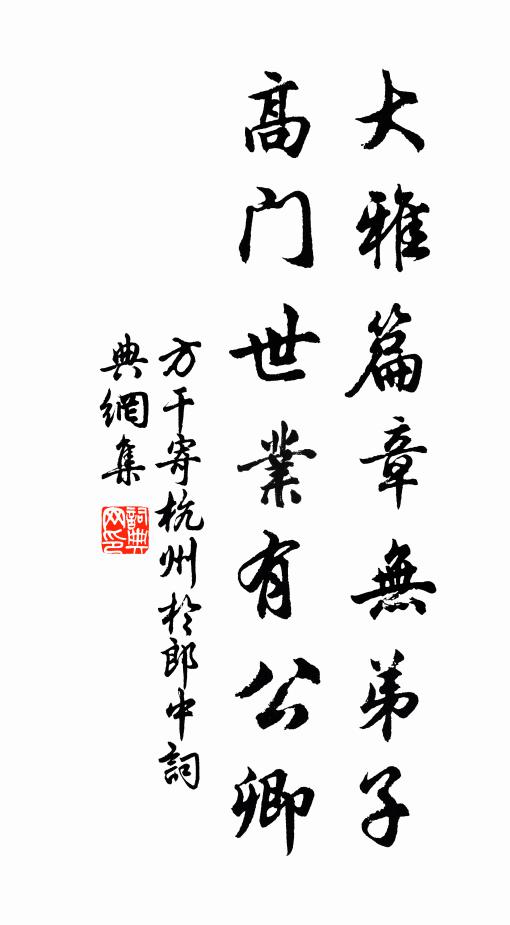 大雅篇章無弟子
高門世業有公卿
方干寄杭州於郎中詞
典網集
詞典
网印